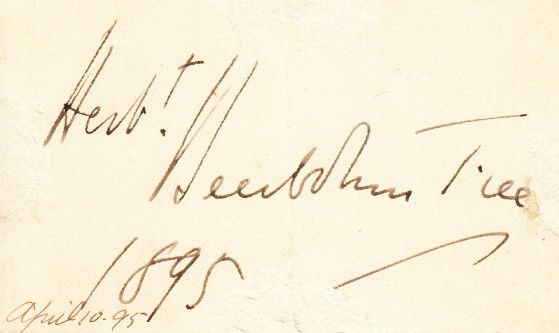 Herbt. Beerbohm Tree
1895
April 10. 95